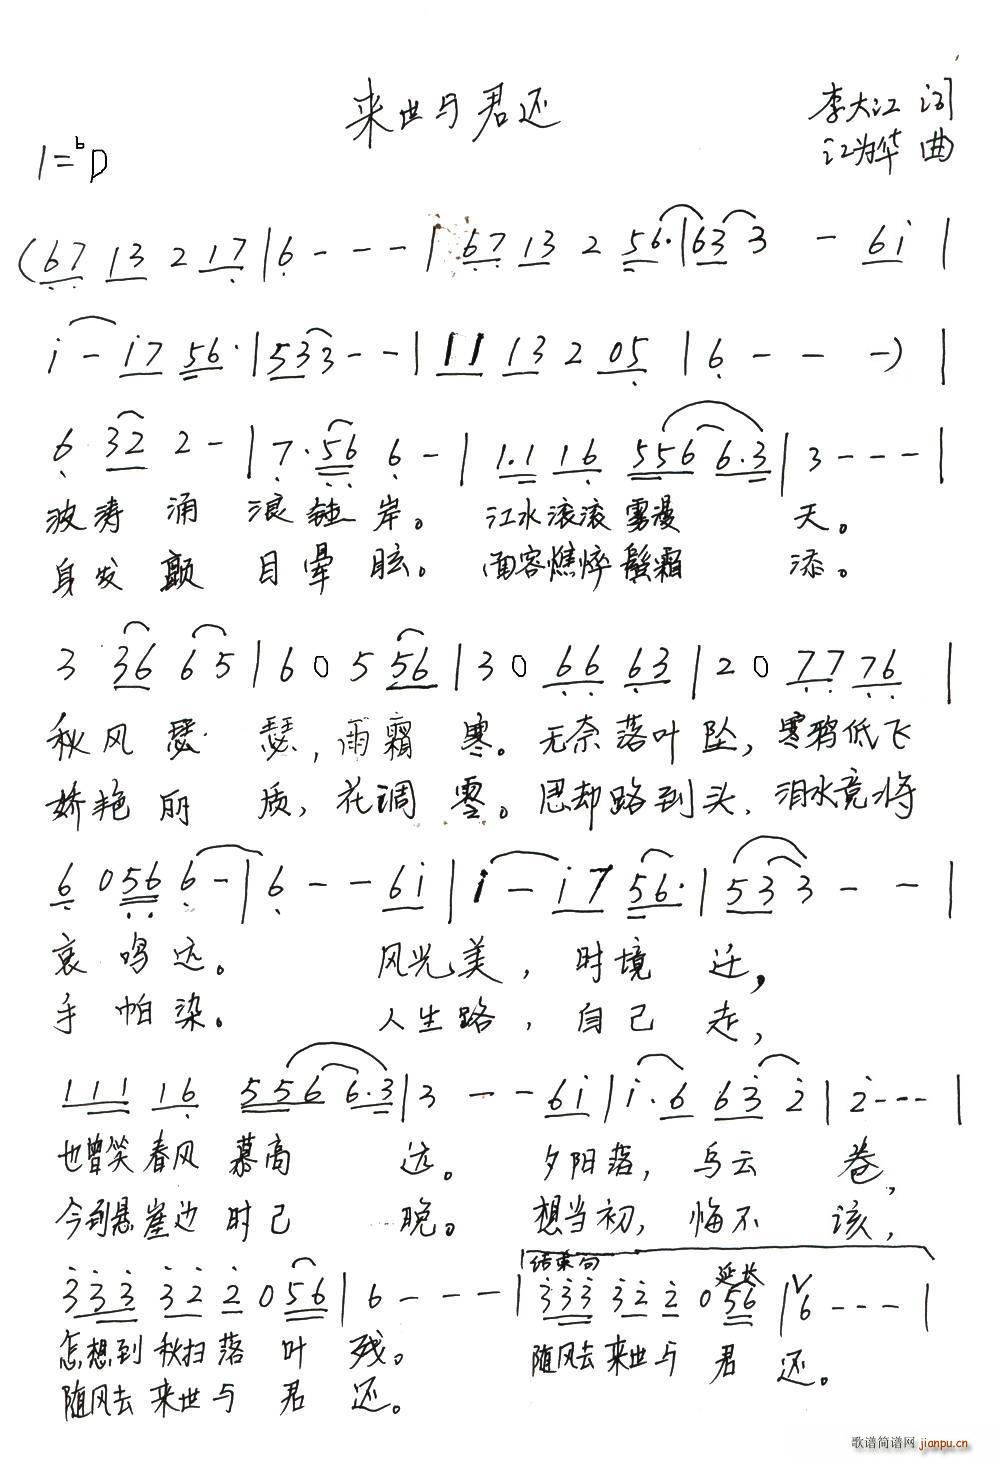 来世与君还
李大江 词
1=bD
江为华 曲
(67 13 2 17 | 6 - - - | 67 13 2 56· | 633 - 6i |
i - i7 56· | 533 - - | 11 13 2 05 | 6 - - -) |
6 32 2 - | 7·56 6 - | 1·1 16 556 6·3 | 3 - - - |
波涛涌浪 岸。 江水滚滚雾漫天。
身发颤 目晕眩。 面容憔悴鬓霜添。
3 36 65 | 6 0 5 56 | 3 0 66 63 | 2 0 77 76 |
秋风瑟瑟,雨霜寒。无奈落叶坠,寒鸦低飞
娇艳丽质,花凋零。思却路到头,泪水竟将
6 0 56 6 - | 6 - - 6i | i - i7 56· | 533 - - |
哀鸣远。 风光美, 时境迁,
手帕染。 人生路, 自己走,
111 16 556 6·3 | 3 - - 6i | i·6 63 2 | 2 - - - |
也曾笑春风慕高远。 夕阳落, 乌云卷,
今到悬崖边时已晚。 想当初, 悔不该,
结束句
延长
333 32 2 0 56 | 6 - - - | 333 32 2 0 56 | V 6 - - - |
怎想到秋扫落叶残。 随风去来世与君还。
随风去来世与君还。
歌谱简谱网 jianpu.cn